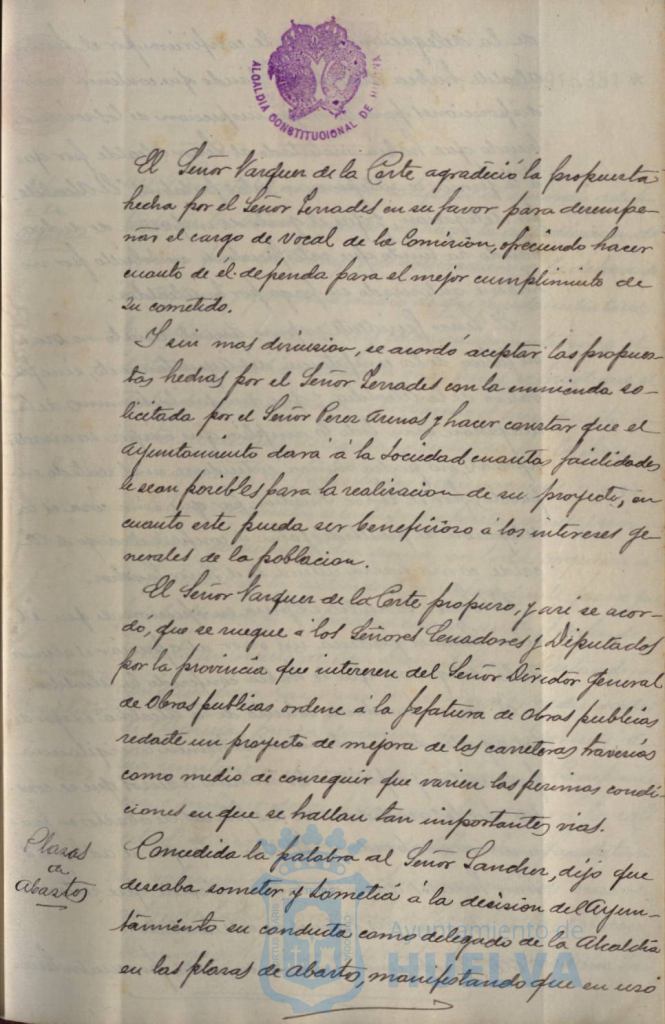 ALCALDIA CONSTITUCIONAL DE HUELVA
El Señor Vazquez de la Corte agradeció la propuesta
hecha por el Señor Terrades en su favor para desempe-
ñar el cargo de Vocal de la Comision, ofreciendo hacer
cuanto de él dependa para el mejor cumplimiento de
su cometido.
Y sin mas discusion, se acordó aceptar las propues-
tas hechas por el Señor Terrades con la enmienda so-
licitada por el Señor Perez Arenas y hacer constar que el
Ayuntamiento dará á la Sociedad cuantas facilidades
le sean posibles para la realizacion de su proyecto, en
cuanto este pueda ser beneficioso á los intereses ge-
nerales de la poblacion.
El Señor Vazquez de la Corte propuso, y así se acor-
dó, que se ruegue á los Señores Senadores y Diputados
por la provincia que interesen del Señor Director General
de Obras publicas ordene á la Jefatura de Obras publicas
redacte un proyecto de mejora de las carreteras travesías
como medio de conseguir que varien las pesimas condi-
ciones en que se hallan tan importantes vias.
Plazas
de
abastos
Concedida la palabra al Señor Sanchez, dijo que
deseaba someter y sometiá á la decision del Ayun-
tamiento su conducta como delegado de la Alcaldia
en las plazas de abasto, manifestando que en uso
Ayuntamiento de
HUELVA